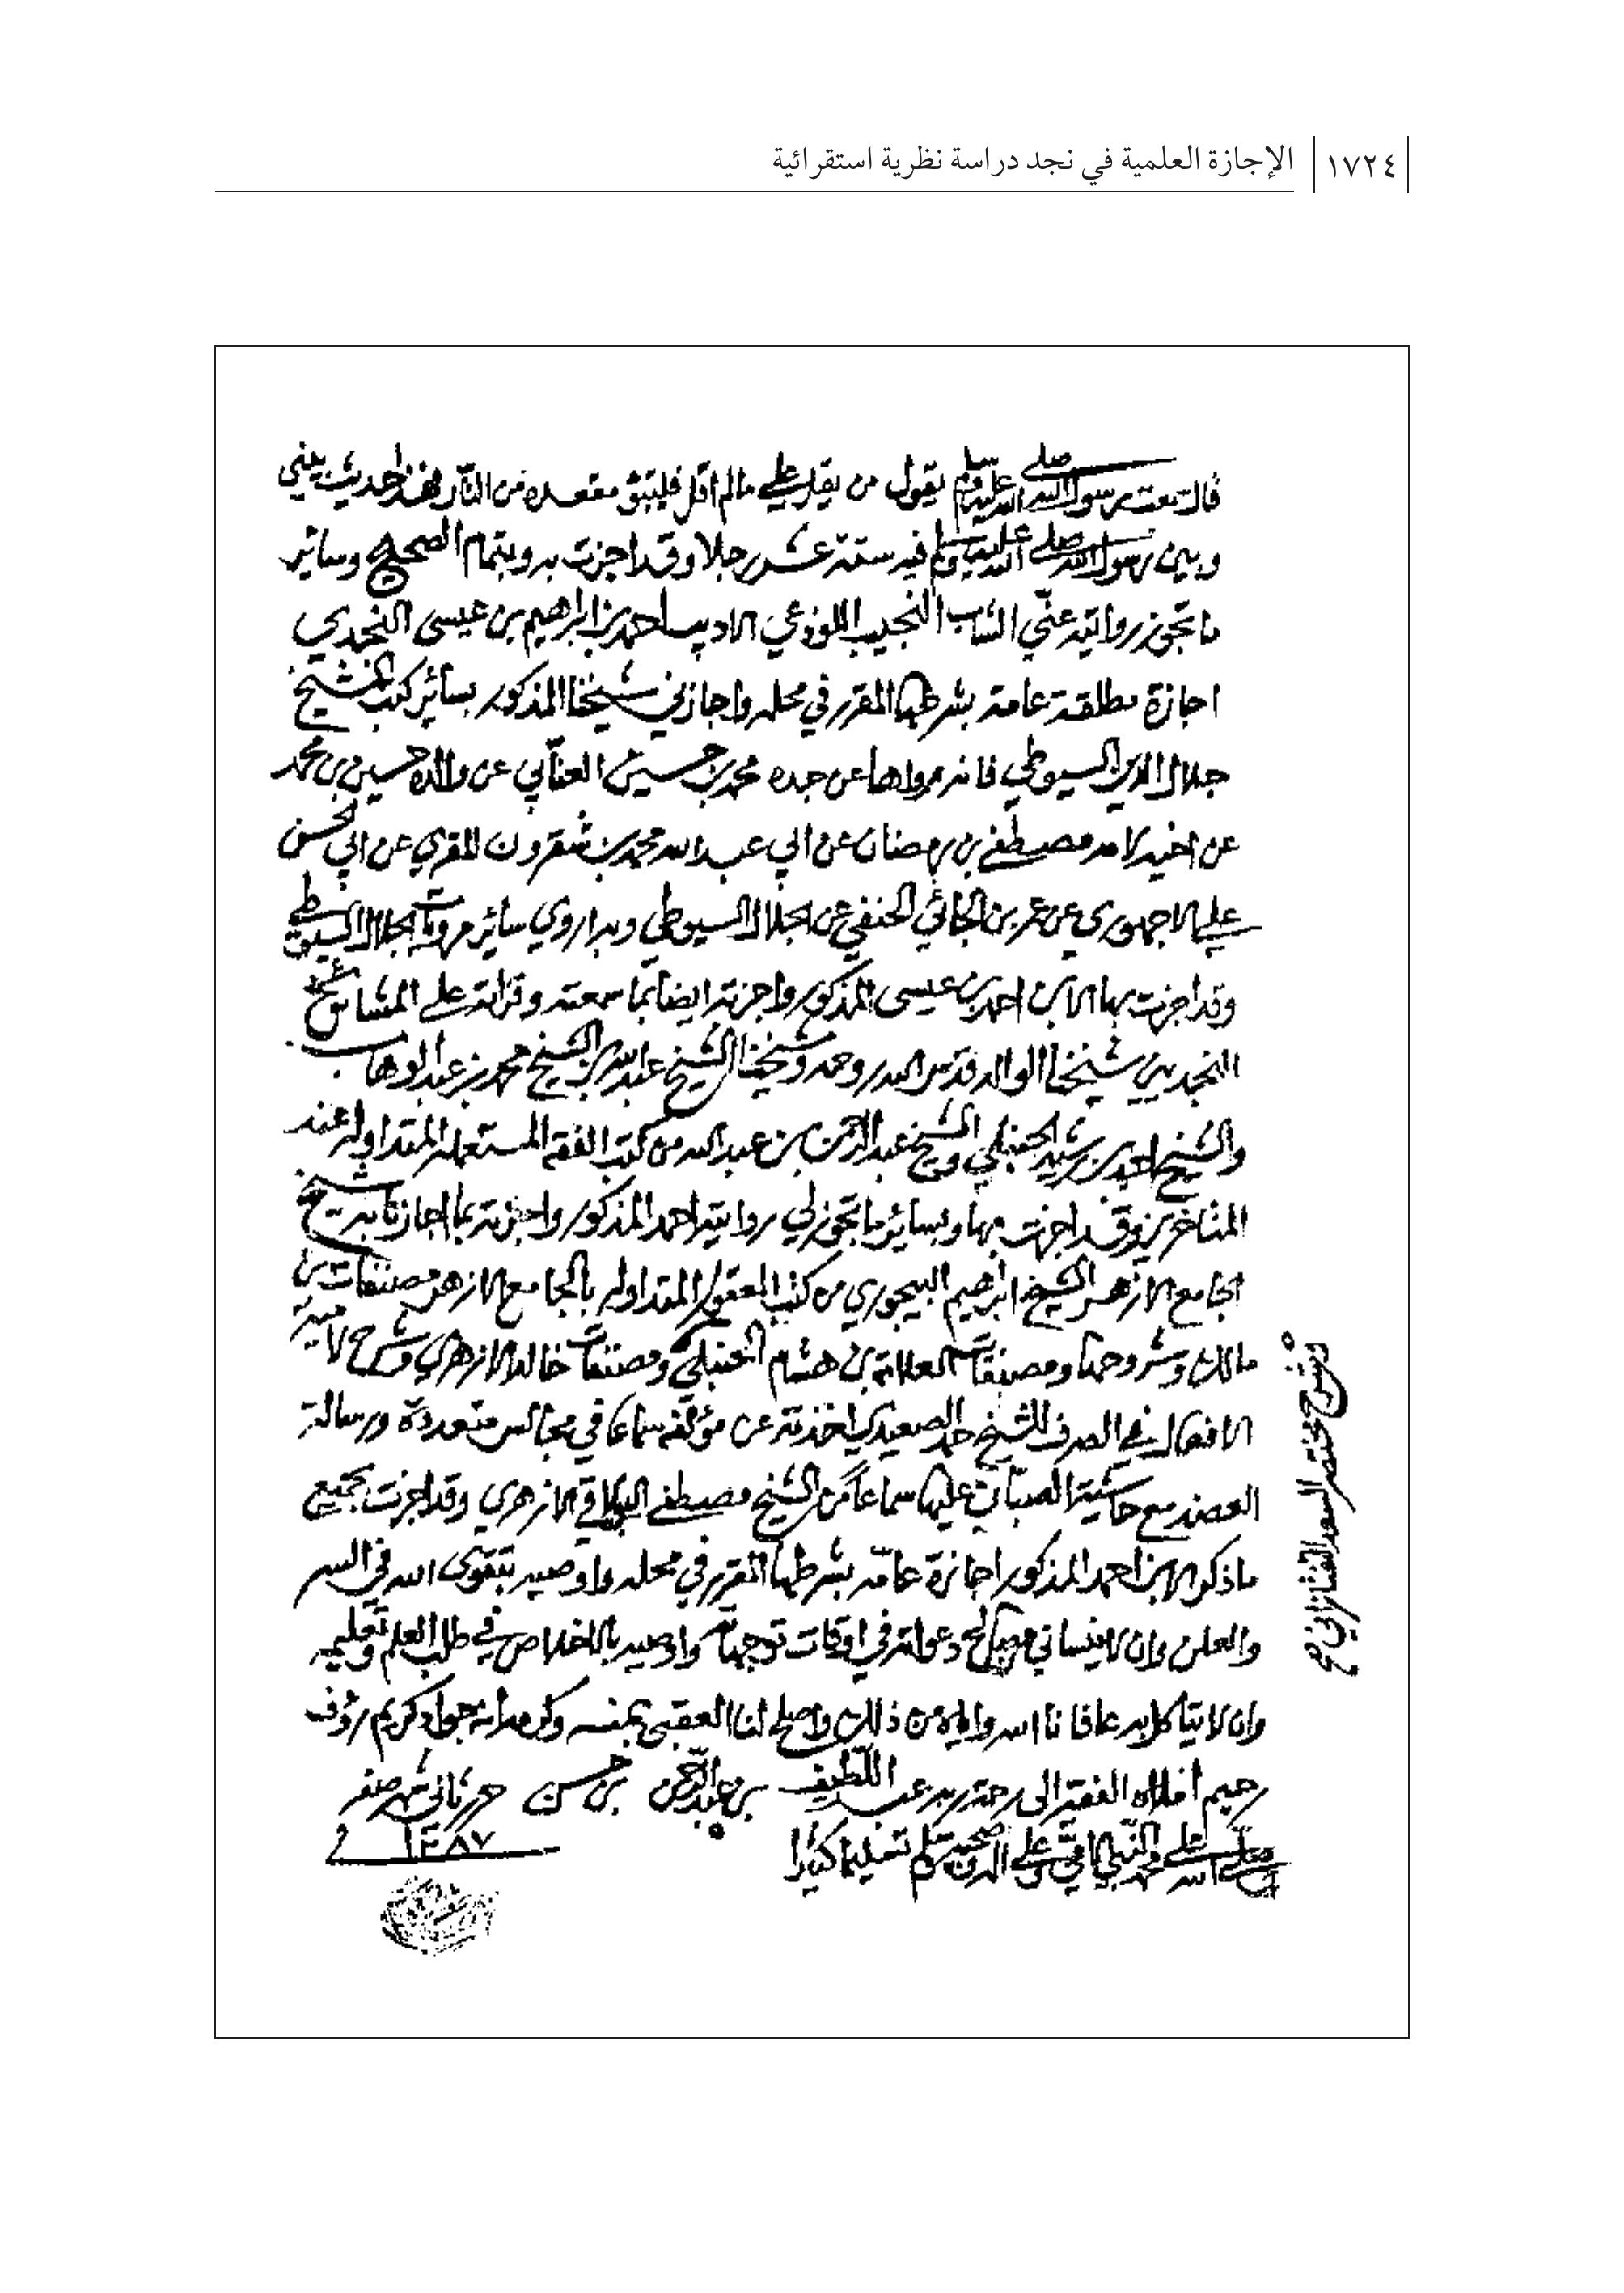 ١٧٢٤ الإجازة العلمية في نجد دراسة نظرية استقرائية
قال سمعت رسول الله صلى الله عليه وسلم يقول من يقل علي مالم اقل فليتبوّ مقعده من النّار فهذا حديث بيني
وبين رسول الله صلى الله عليه وسلم فيه ستة عشر رجلا وقد اجزت به وبتمام الصحيح وسائر
ما تجوز روايته عنّي الشاب النجيب اللوذعي الاديب احمد بن ابراهيم بن عيسى النجدي
اجازة مطلقة عامة بشرطها المقرر في محله واجازني شيخنا المذكور بسائر كتب الشيخ
جلال الدين السيوطي فانه رواها عن جده محمد بن حسين العنّابي عن والده حسين بن محمد
عن اخيه لامه مصطفى بن رمضان عن ابي عبد الله محمد بن شقرون المقري عن ابي الحسن
علي الاجهوري عن عمر بن الجائي الحنفي عن الجلال السيوطي وبه اروي سائر مرويات الجلال السيوطي
وقد اجزت بها الابن احمد بن عيسى المذكور واجزته ايضا بما سمعته وقراته على المشائخ
النجديين شيخنا الوالد قدس الله روحه وشيخنا الشيخ عبد الله بن الشيخ محمد بن عبد الوهاب
والشيخ احمد بن رشيد الحنبلي والشيخ عبد الرحمن بن عبد الله من كتب الفقه المستعمله المتداوله عند
المتاخرين وقد اجزت بها وبسائر ما تجوز لي روايته احمد المذكور واجزته بما اجازنا به شيخ
الجامع الازهر الشيخ ابراهيم البيجوري من كتب المعقول المتداوله بالجامع الازهر مصنفات بن
مالك وشروحها ومصنفات العلامة بن هشام الحنبلي ومصنفات خالد الازهري وشرح لامية
الافعال في الصرف للشيخ حمد الصعيدي اخذته عن مؤلفه سماعا في مجالس متعددة ورسالة
العضد مع حاشية الصبان عليها سماعاً من الشيخ مصطفى البولاقي الازهري وقد اجزت بجميع
ماذكر الابن احمد المذكور اجازة عامّه بشرطها المقرر في محله واوصيه بتقوى الله في السر
والعلن وان لا ينساني من صالح دعواته في اوقات توجهاته واوصيه بالاخلاص في طلب العلم وتعليمه
وان لا يتاكل به عافانا الله واياه من ذلك واصلح لنا العقبى بمنه وكرمه انه جواد كريم رؤف
رحيم املاه الفقير الى رحمة ربه عبد اللّطيف بن عبد الرّحمن بن حسن حرر ثاني شهر صفر
وصلى الله على محمد النّبي الامّي وعلى اله وصحبه وسلم تسليما كثيرا
١٢٨٧
وشرح مختصر السعد التفتازاني